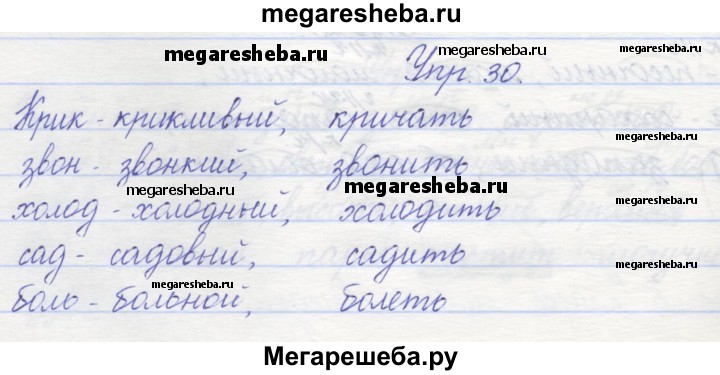 megaresheba.ru
megaresheba.ru megaresheba.ru
Упр. 30.
Крик - крикливый, кричать
megaresheba.ru megaresheba.ru
звон - звонкий, звонить
megaresheba.ru megaresheba.ru
холод - холодный, холодить
megaresheba.ru
сад - садовый, садить
megaresheba.ru
боль - больной, болеть
megaresheba.ru megaresheba.ru
Мегарешеба.ру